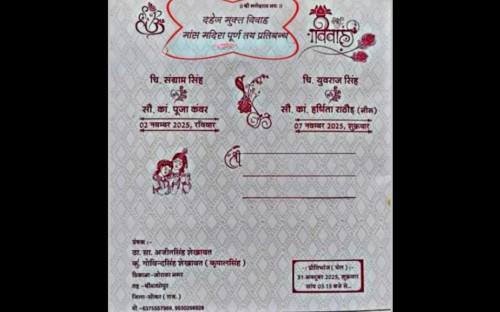 ॥ श्री गणेशाय नमः ॥
दहेज मुक्त विवाह
मांस मदिरा पूर्ण तय प्रतिबन्ध
शुभ
विवाह
चि. संग्राम सिंह
सौ. कां. पूजा कंवर
02 नवम्बर 2025, रविवार
चि. युवराज सिंह
सौ. कां. हर्षिता राठौड़ (नीलू)
07 नवम्बर 2025, शुक्रवार
श्री
प्रेषक :-
ठा. सा. अजीतसिंह शेखावत
कुं. गोविन्दसिंह शेखावत (कृपालसिंह)
ठिकाना -
तह.- श्रीमाधोपुर
जिला-सीकर (राज.)
मो.
-: प्रीतिभोज (मेल) :-
31 अक्टूबर 2025, शुक्रवार
सांय 05.15 बजे से...